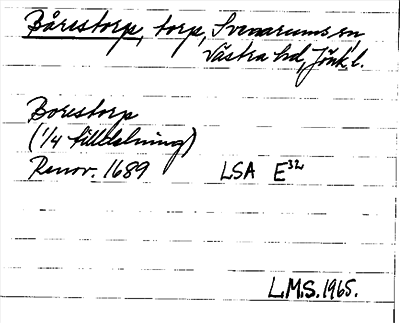 Bårestorp, torp, Svenarums sn,
Västra hd, Jönk. l.
Borestorp
(1/4 tilldelning)
Renov. 1689 LSA E32
L.M.S. 1965.